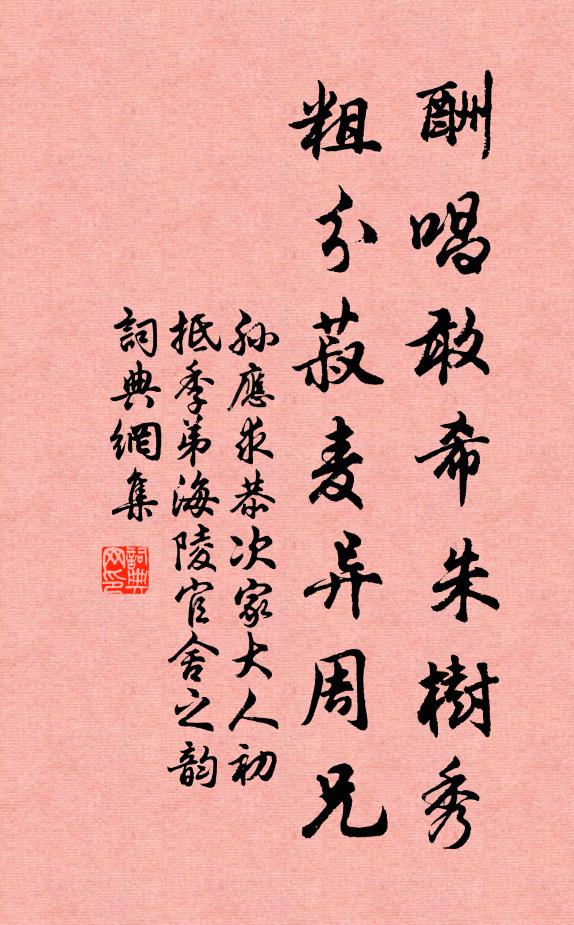 酬唱敢希朱樹秀
粗分菽麦异周兄
孙應求恭次家大人初
抵季弟海陵官舍之韵
詞典網集
詞典网印